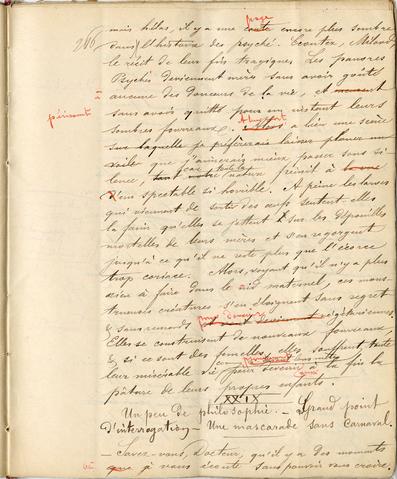 266
page
mais hélas, il y a une conte encore plus sombre
dans l'histoire des psyché. Ecoutez, Milord,
le récit de leur fin tragique. Les pauvres
Psychés deviennent mères sans avoir goûté
à aucune des douceurs de la vie, et meurent
périssent
sans avoir quitté pour un instant leurs
sombres fourreaux. Alors a lieu une scène
sur laquelle je préférerais laisser planer un
voile que j'aimerais mieux passer sous si
lence, tant notre nature frémit à
d'un spectacle si horrible. A peine les larves
qui viennent de sortir des œufs sentent-elles
la faim qu'elles se jettent sur les dépouilles
mortelles de leurs mères et s'en regorgent
jusqu'à ce qu'il ne reste plus que l'écorce
trop coriace. Alors, voyant qu'il n'y a plus
rien à faire dans le nid maternel, ces mons-
trueuses créatures s'en éloignent sans regret
& sans remords
Elles se construisent de nouveaux fourreaux,
&, si ce sont des femelles, elles souffrent toute
leur misérable vie pour devenir à la fin la
pâture de leurs propres enfants.
XXIX
Un peu de philosophie. — Grand point
D'interrogation — Une mascarade sans Carnaval.
— Savez-vous, Docteur, qu'il y a des moments
où
que je vous écoute sans pouvoir vous croire.